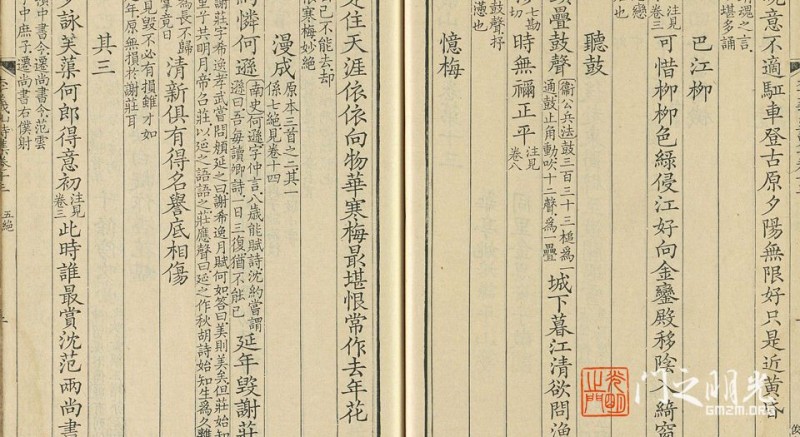 意不適駈車登古原夕陽無限好只是近黃昏
魂之言
堪多誦
巴江柳
注見
卷三
可惜柳柳色綠侵江好向金鑾殿移陰入綺窗
聽鼓
疊鼓聲
衞公兵法鼓三百三十三槌為一
通鼓止角動吹十二聲為一疊
城下暮江清欲問漁
七勘
切
時無禰正平
注見
卷八
憶梅
住天涯依依向物華寒梅最堪恨常作去年花
已不能去却
依寒梅妙絕
漫成
原本三首之二其一
係七絕見卷十四
憐何遜
南史何遜字仲言八歲能賦詩沈約嘗謂
遜曰吾每讀卿詩一日三復猶不能已
延年毀謝莊
謝莊字希逸孝武嘗問顏延之曰謝希逸月賦何如答曰美則美矣但莊始知
里兮共明月帝召莊以延之語語之莊應聲曰延之作秋胡詩始知生為久離
為長不歸
竟日
清新俱有得名譽底相傷
見毀不必有損雖才如
年原無損於謝莊耳
其三
夕詠芙蕖何郎得意初
注見
卷三
此時誰最賞沈范兩尚書
中書令遷尚書令范雲
中庶子遷尚書右僕射
五絕
門之明光
GMZM.ORG